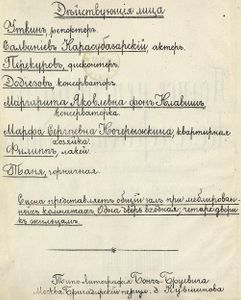 Дѣйствующія лица
Уткинъ, репортеръ.
Салвиніевъ Карасубазарскій, актеръ.
Перекуровъ, дисконтеръ.
Доброзовъ, консерваторъ.
Маргарита Яковлевна фонъ Клавишъ,
консерваторка.
Марфа Сергѣевна Кочерыжкина, квартирная
хозяйка.
Филиппъ, лакей.
Таня, горничная.
Сцена представляетъ общій залъ при меблирован-
ныхъ комнатахъ. Одна дверь входная, четыре двери
къ жильцамъ.
Типо-литографія Бонч-Бруевича
Москва Григорьевскій переул. д. Кувшинова